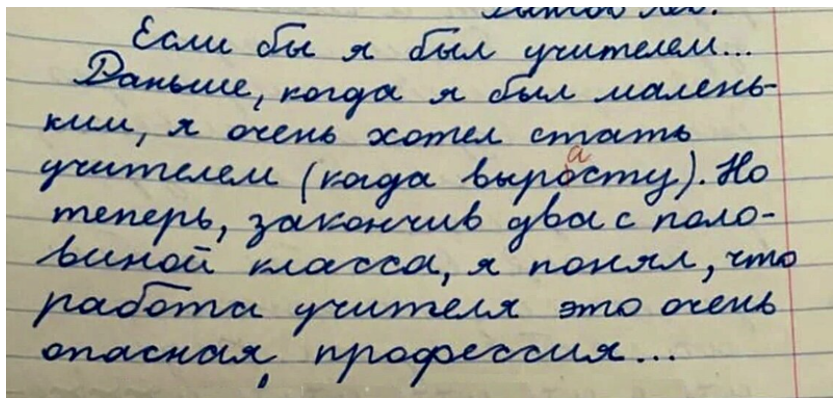 Если бы я был учителем...
Раньше, когда я был малень-
ким, я очень хотел стать
учителем (когда выросту). Но
а
теперь, закончив два с поло-
виной класса, я понял, что
работа учителя это очень
опасная, профессия...